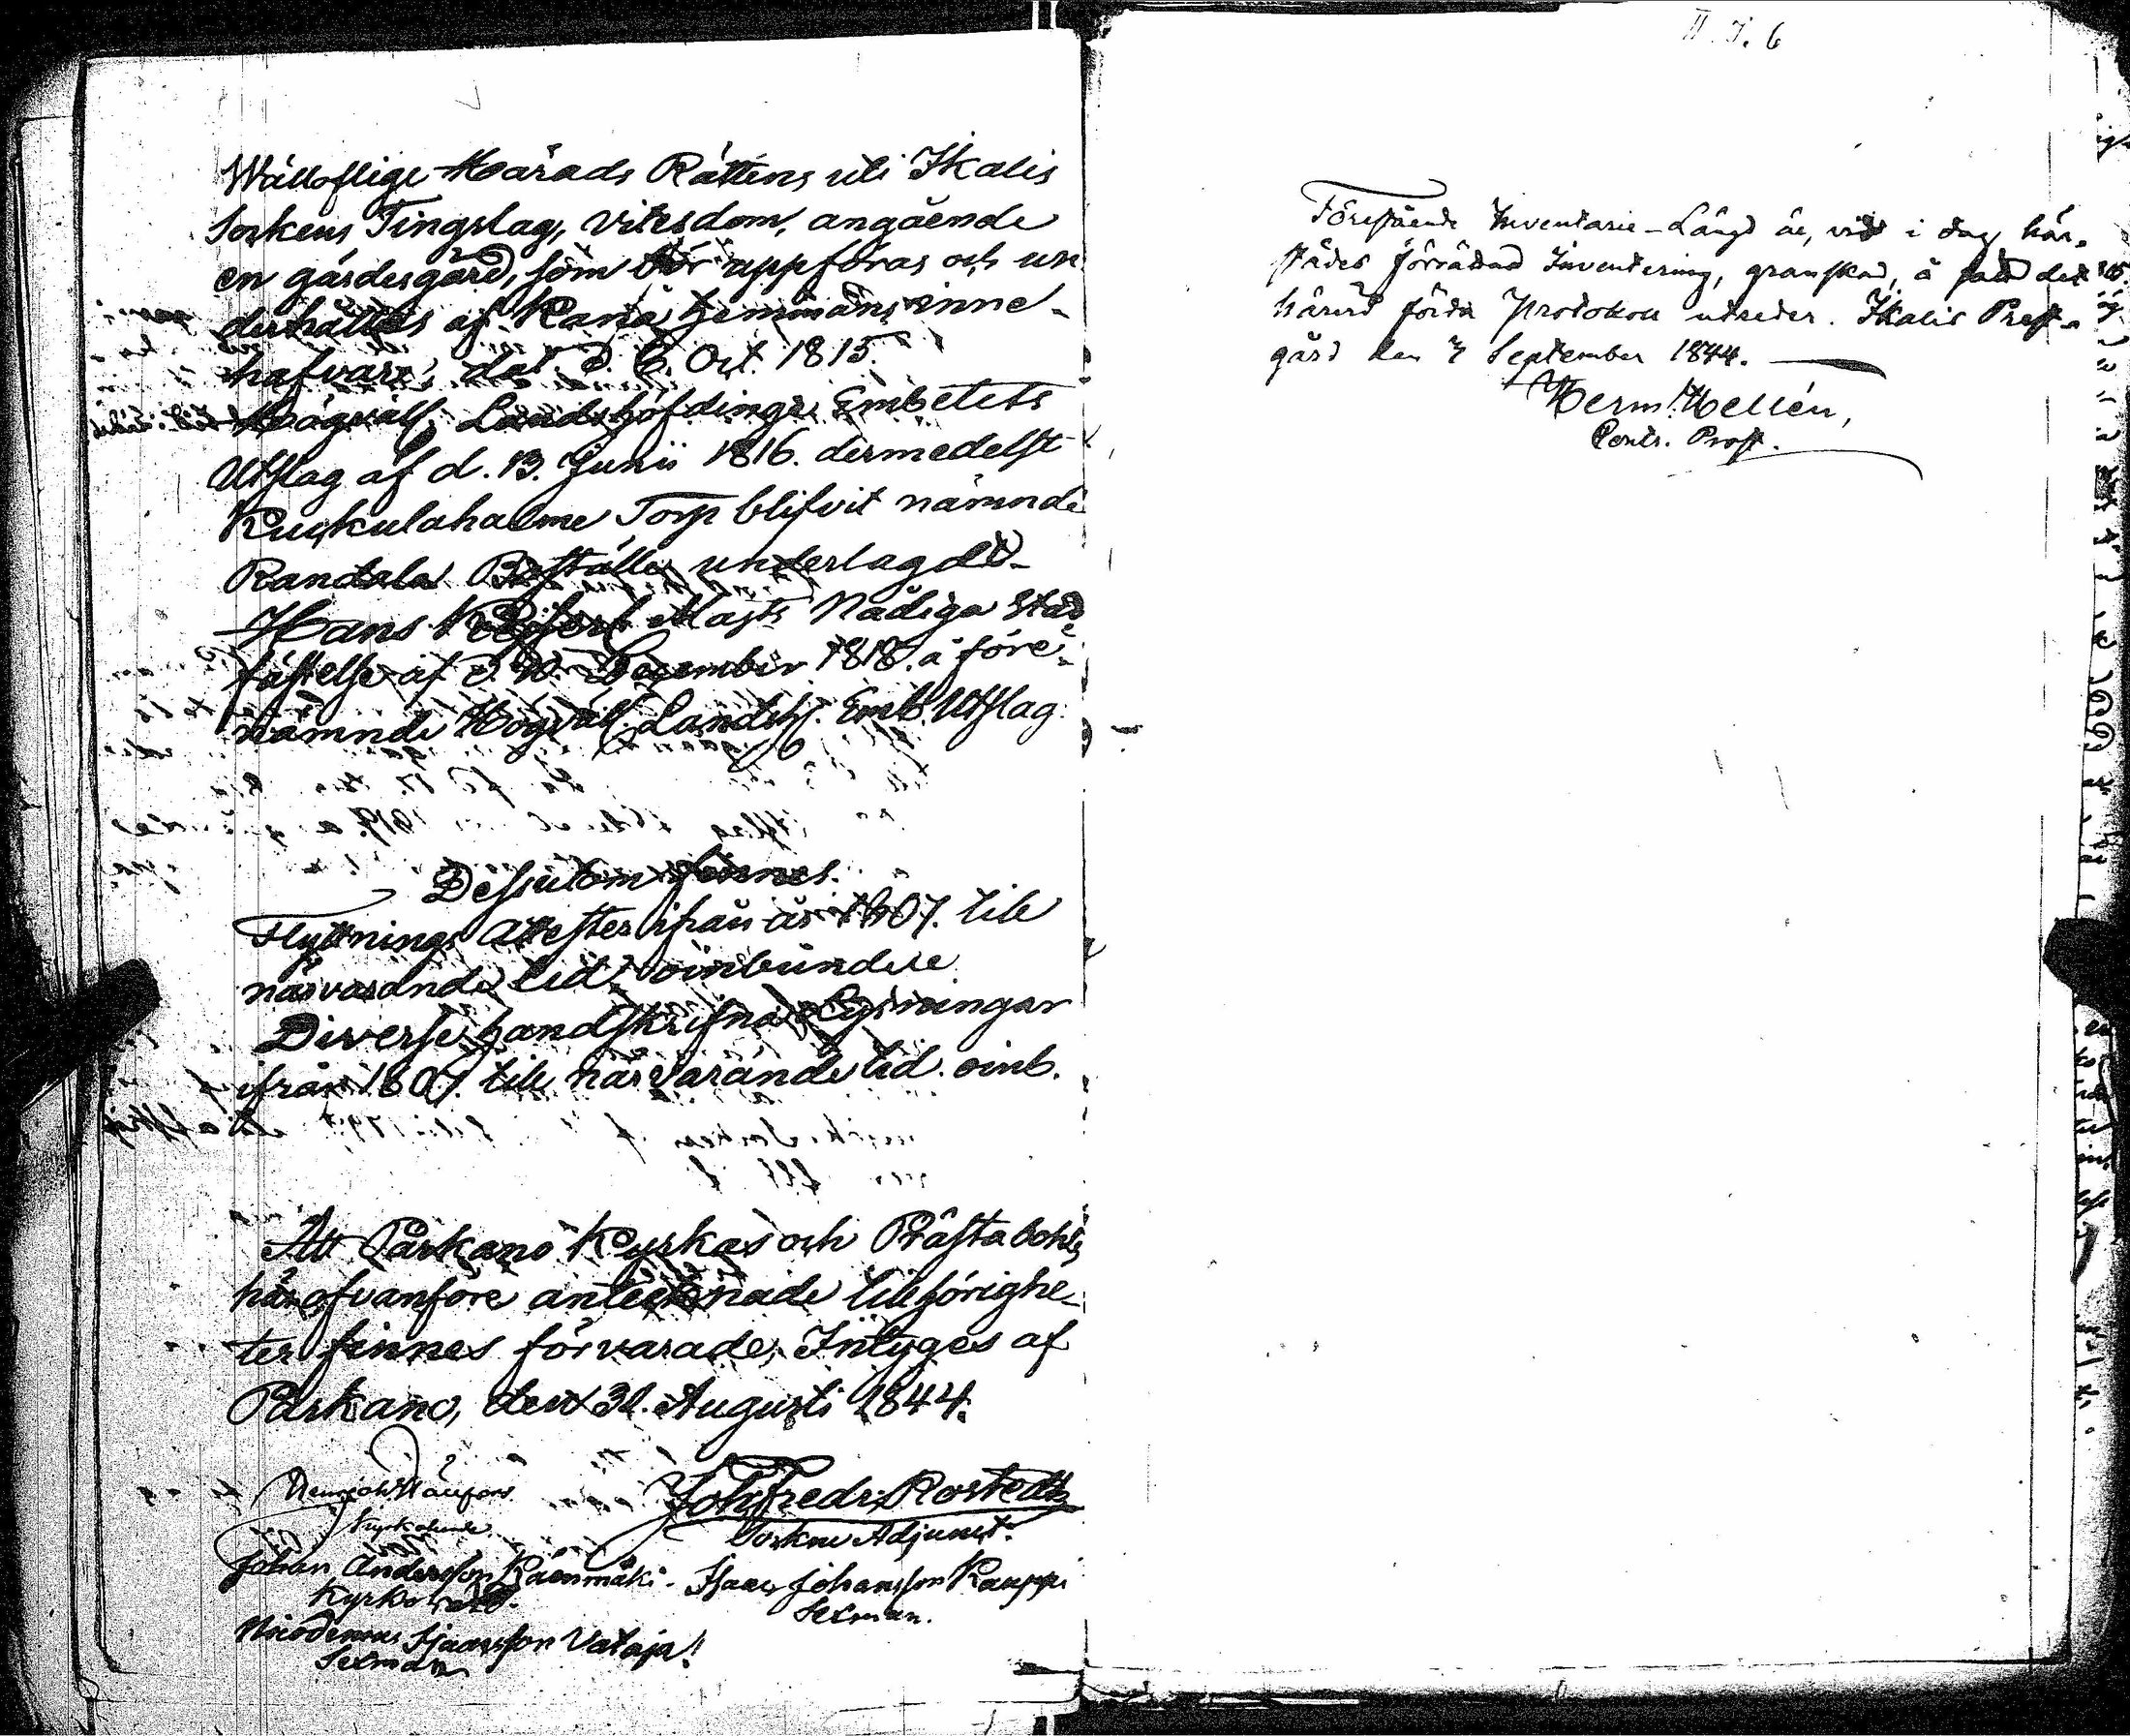 Wällofliga Härads Rättens uti Ikalis
Sockens Tingslag, vitesdom, angående
en gärdesgård, som bör uppföras och un
derhållas af Rana hemmans inne-
hafvare, dat. d. 6. Oct. 1815.
Högväll. Landshöfdinge Embetets
Utslag af d. 13. Junii 1816. dermedelst
Kuckulahalme Torp blifvit nämnde
Randala Boställe underlagdt.
Hans Kejserl. Majts Nådiga Stad
fästelse af d. December 1818. å före-
nämnde Högväll. Landsh. Emb. Utslag.
Dessutom finnes.
Flyttnings Attester ifrån år 1807. till
närvarande tid, oinbundne
Diverse handskrifna Lysningar
ifrån 1807. till närvarande tid. oinb.
Att Parkano Kyrkas och Prästabohls
här ofvanföre antecknade tillhörighe-
ter finnes förvarade, Intyges af
Parkano, den 31. Augusti 1844.
Joh. Fredr. Rostedt
Sockne Adjunct.
Johan Andersson Käenmäki.
Kyrkovärd.
Isaac Johansson Kauppi
Sexman.
Nicodemus Isaacsson Vataja!
Sexman
II. I. 6
Förestående Inventarie-Längd är, vid i dag här-
städes förrättad Inventering, granskad, å satt det
härvid förda Protokoll utreder. Ikalis Prest-
gård den 7 September 1844.
Herm. Hellén,
Contr. Prost.